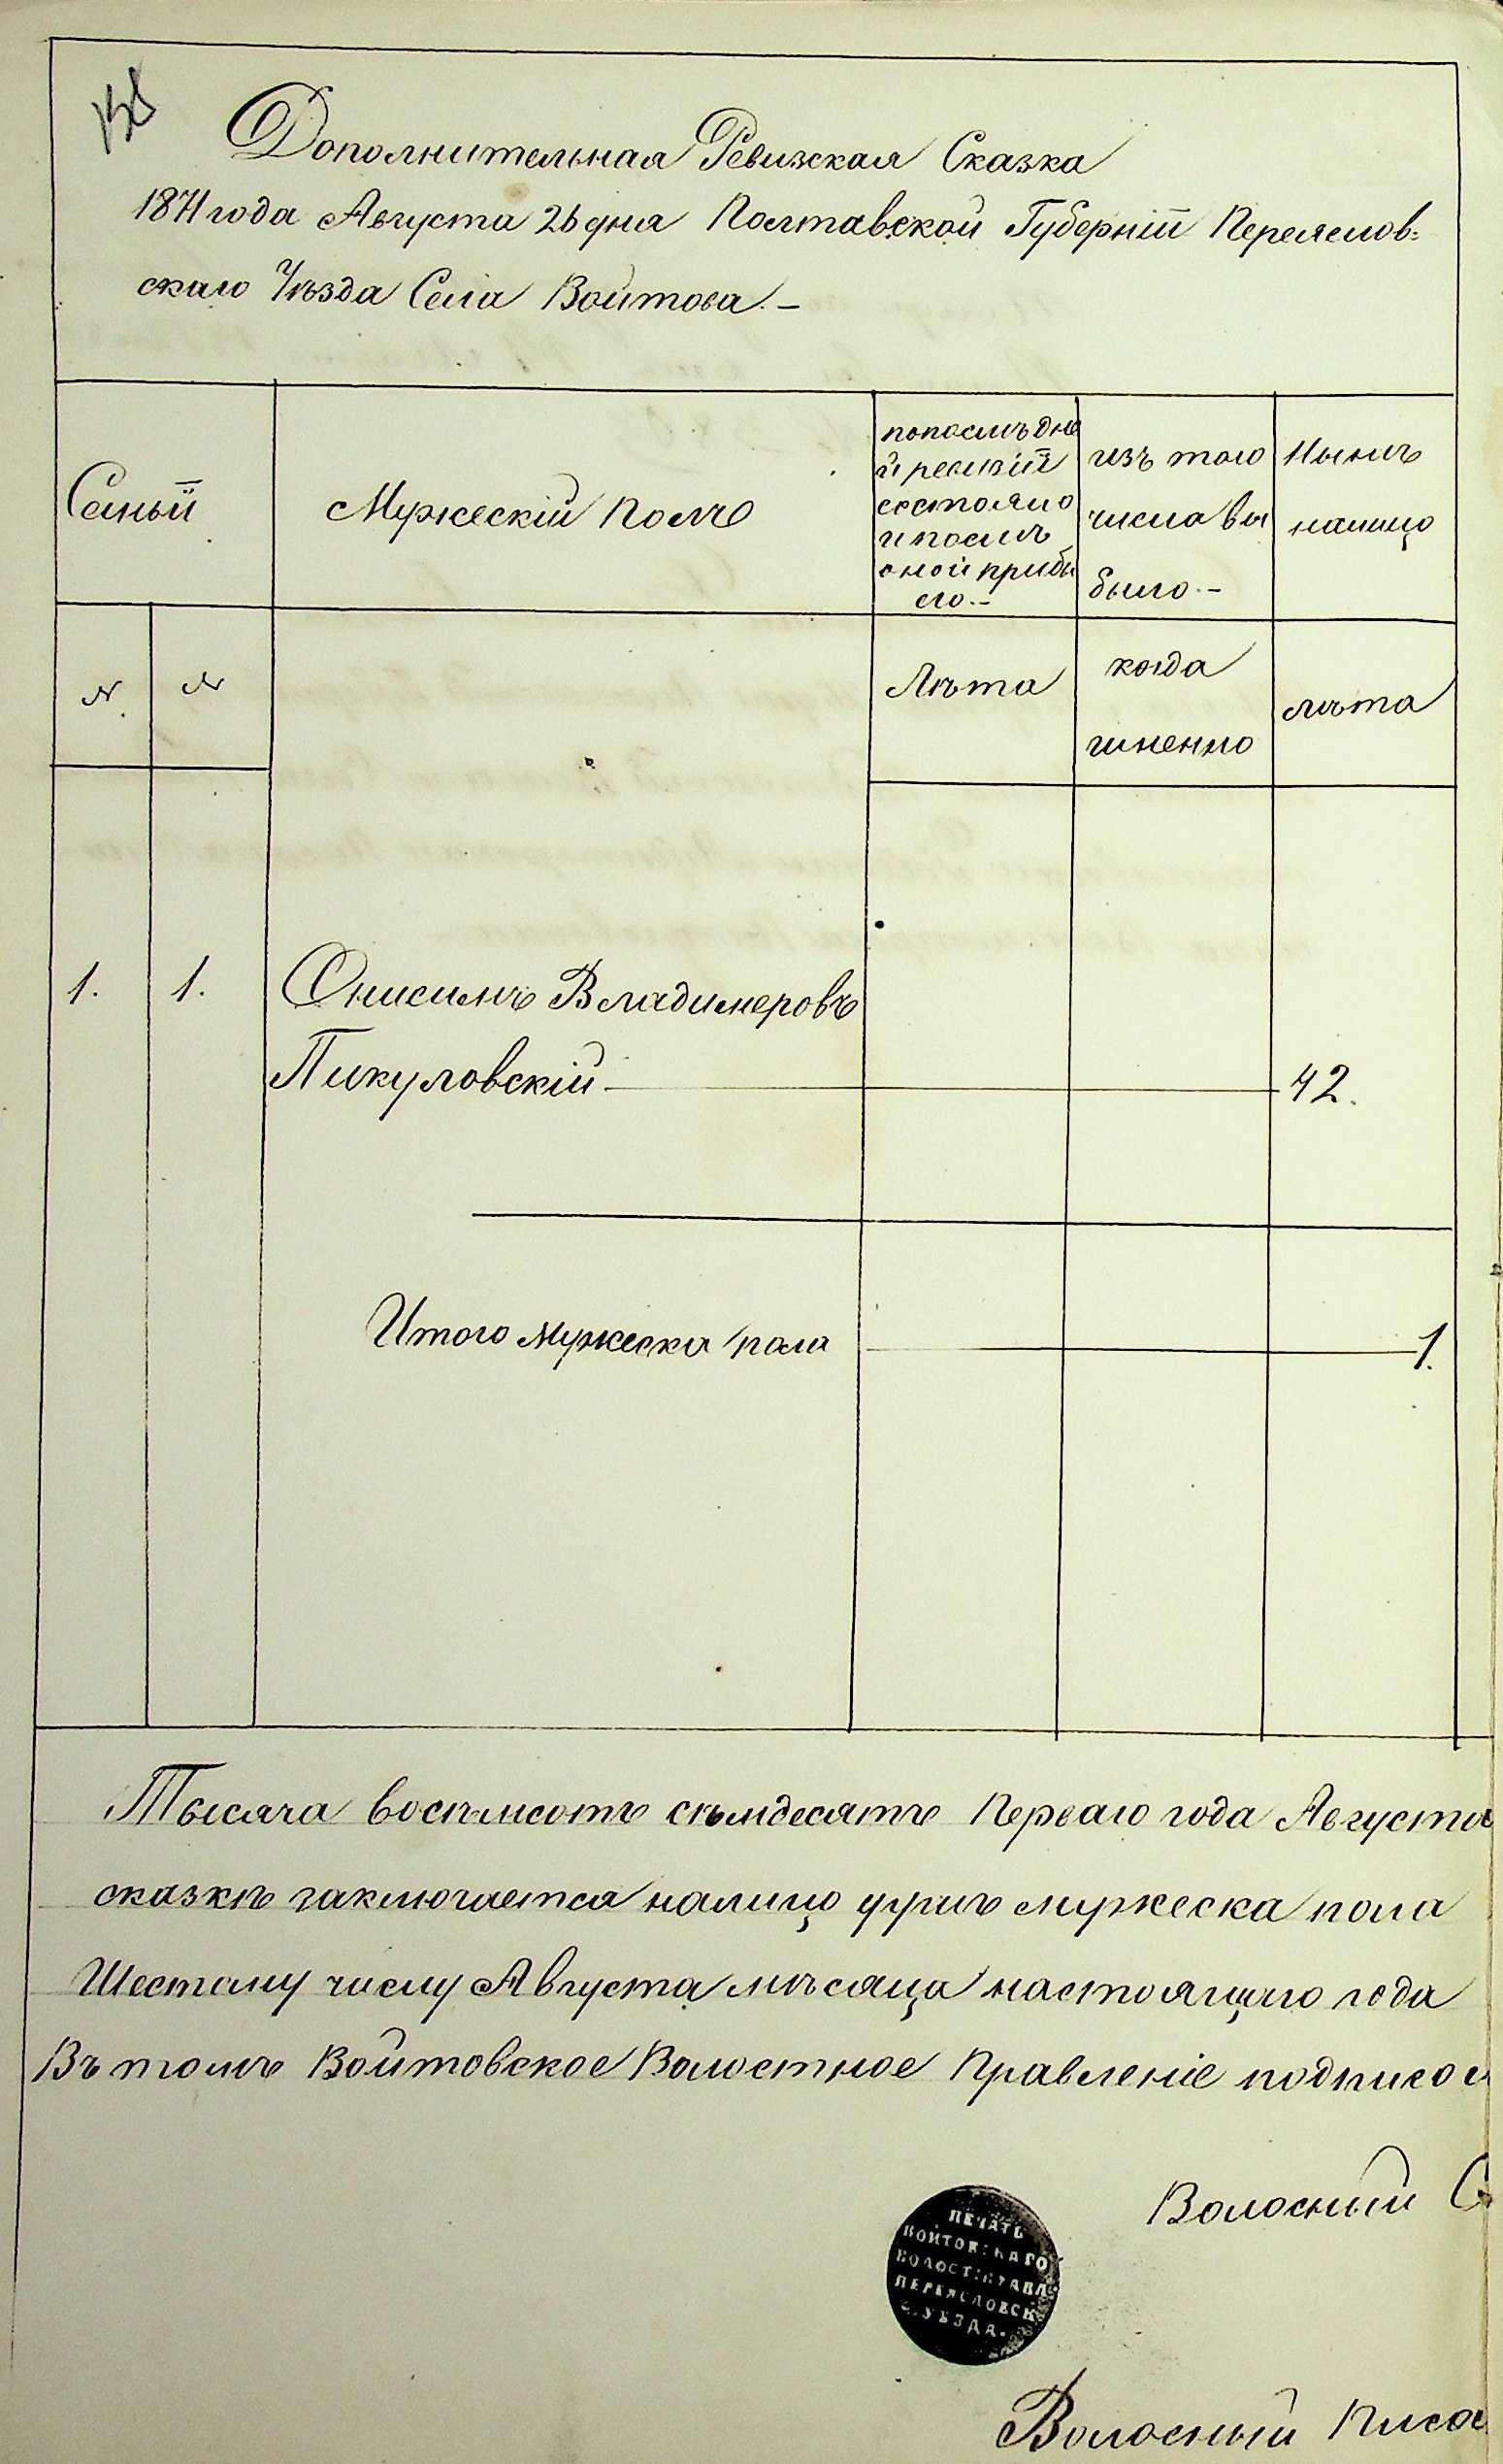 Дополнительная Ревизская Сказка
1871 года Августа 26 дня Полтавской Губерніи Переяслов-
скаго Уѣзда Села Войтова.-
Семьи
Мужескій полъ
попослѣдне
й ревизіи
состояло
и послѣ
оной прибы
ло.-
изъ того
числа вы
было.-
Нынѣ
налицо
№
№
Лѣта
когда
именно
лѣта
1.
1.
Онисимъ Владимеровъ
Пикуловскій
42.
Итого мужеска пола
1.
Тысяча восемьсотъ сѣмдесятъ Перваго года Августа
сказкѣ заключается налицо душъ мужеска пола
Шестому числу Августа мѣсяца настоящаго года
Въ томъ Войтовское Волостное Правленіе подписо
Волосный С
ПЕЧАТЬ
ВОЙТОВСКАГО
ВОЛОСТ: ПРАВЛ:
ПЕРЕЯСЛОВСК:
УѢЗДА.
Волосный Писа